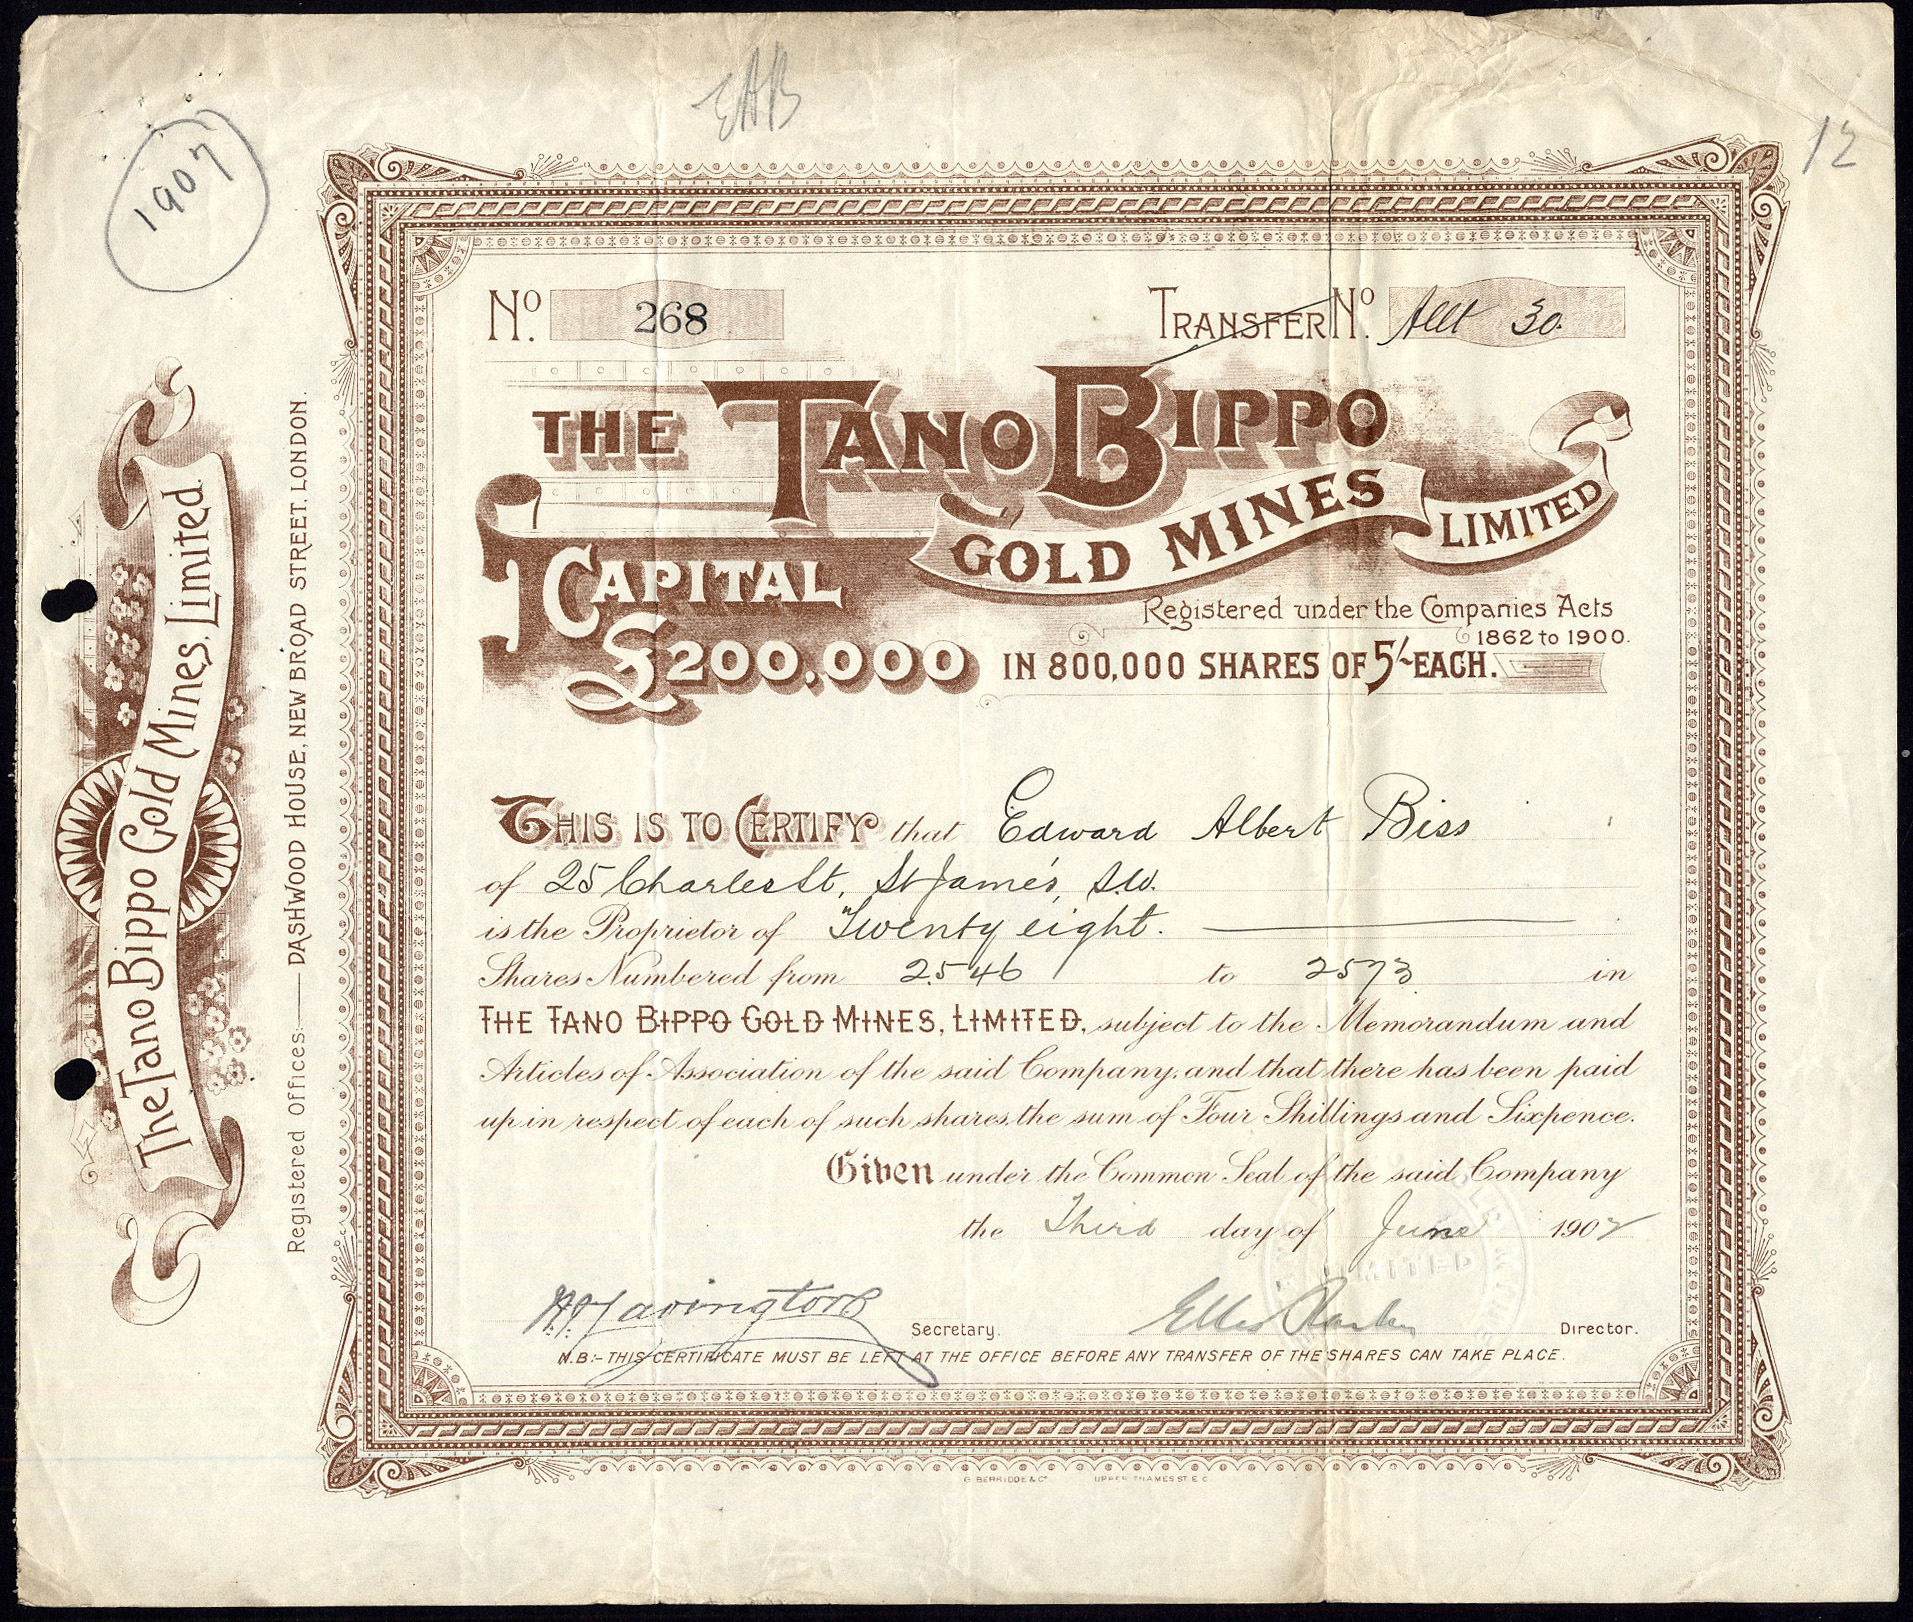 EAB
12
1907
No. 268
TRANSFER No. Allt 30.
THE TANO BIPPO
GOLD MINES LIMITED
CAPITAL
Registered under the Companies Acts
1862 to 1900.
£200,000 IN 800,000 SHARES OF 5/- EACH.
THIS IS TO CERTIFY that Edward Albert Biss
of 25 Charles St, St James, S.W.
is the Proprietor of Twenty eight.
Shares Numbered from 2546 to 2573 in
THE TANO BIPPO GOLD MINES, LIMITED, subject to the Memorandum and
Articles of Association of the said Company, and that there has been paid
up in respect of each of such shares, the sum of Four Shillings and Sixpence.
Given under the Common Seal of the said Company
the Third day of June 1907
Secretary.
Director.
N.B:- THIS CERTIFICATE MUST BE LEFT AT THE OFFICE BEFORE ANY TRANSFER OF THE SHARES CAN TAKE PLACE.
G. BERRIDGE & Co. UPPER THAMES ST. E.C.
The Tano Bippo Gold Mines, Limited.
Registered Offices:— DASHWOOD HOUSE, NEW BROAD STREET, LONDON.
LIMITED